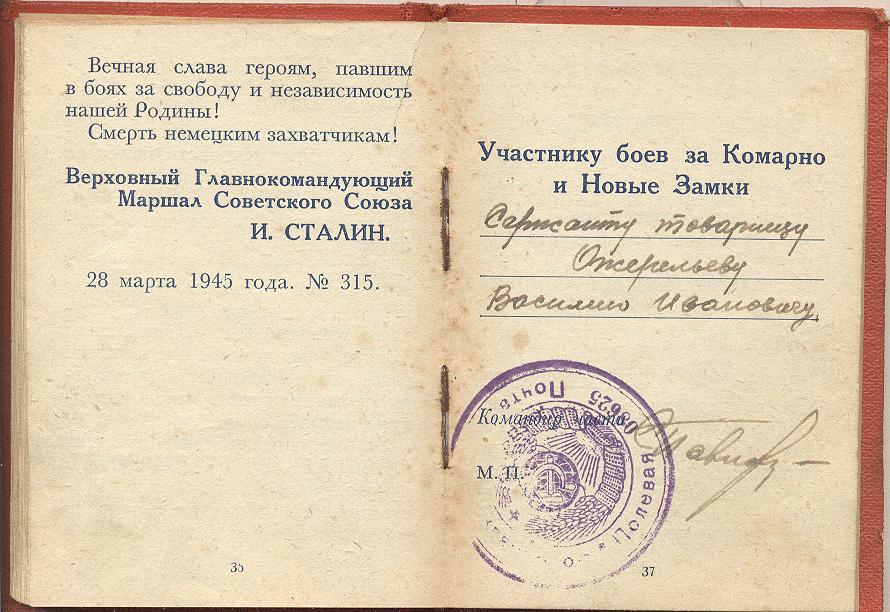 Вечная слава героям, павшим
в боях за свободу и независимость
нашей Родины!
Смерть немецким захватчикам!
Верховный Главнокомандующий
Маршал Советского Союза
И. СТАЛИН.
28 марта 1945 года. № 315.
35
Участнику боев за Комарно
и Новые Замки
Сержанту товарищу
Ожерельеву
Василию Ивановичу
Командир части
М. П.
Полевая Почта
37